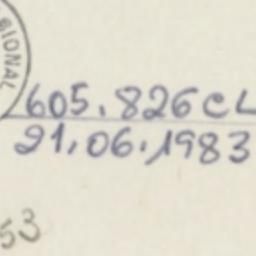 GIONAL
605.826CL
21.06.1983
53